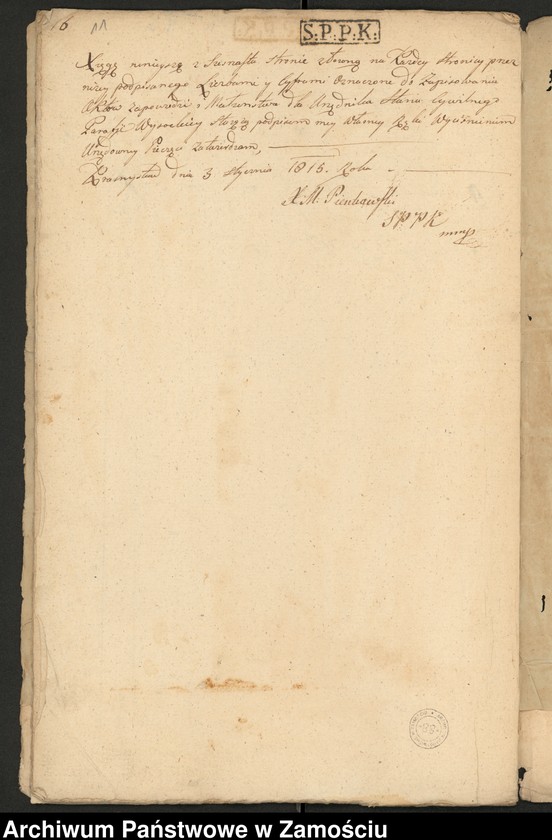 16 11
S.P.P.K.
Xięgę ninieyszą z Szesnastu stronic złożoną na każdey stronicy przez
niżey podpisanego Liczbami y Cyframi oznaczone do Zapisowania
Aktów zapowiedzi i Małżenstwa dla Urzędnika Stanu Cywilnego
Parafii Wysockiey służącą podpisem mey własney Ręki Wyciśnieniem
Urzędowey Pieczęci Zatwierdzam,
Krasnystaw dnia 3 Stycznia 1815. Roku
X. M.
S P P K
mmp